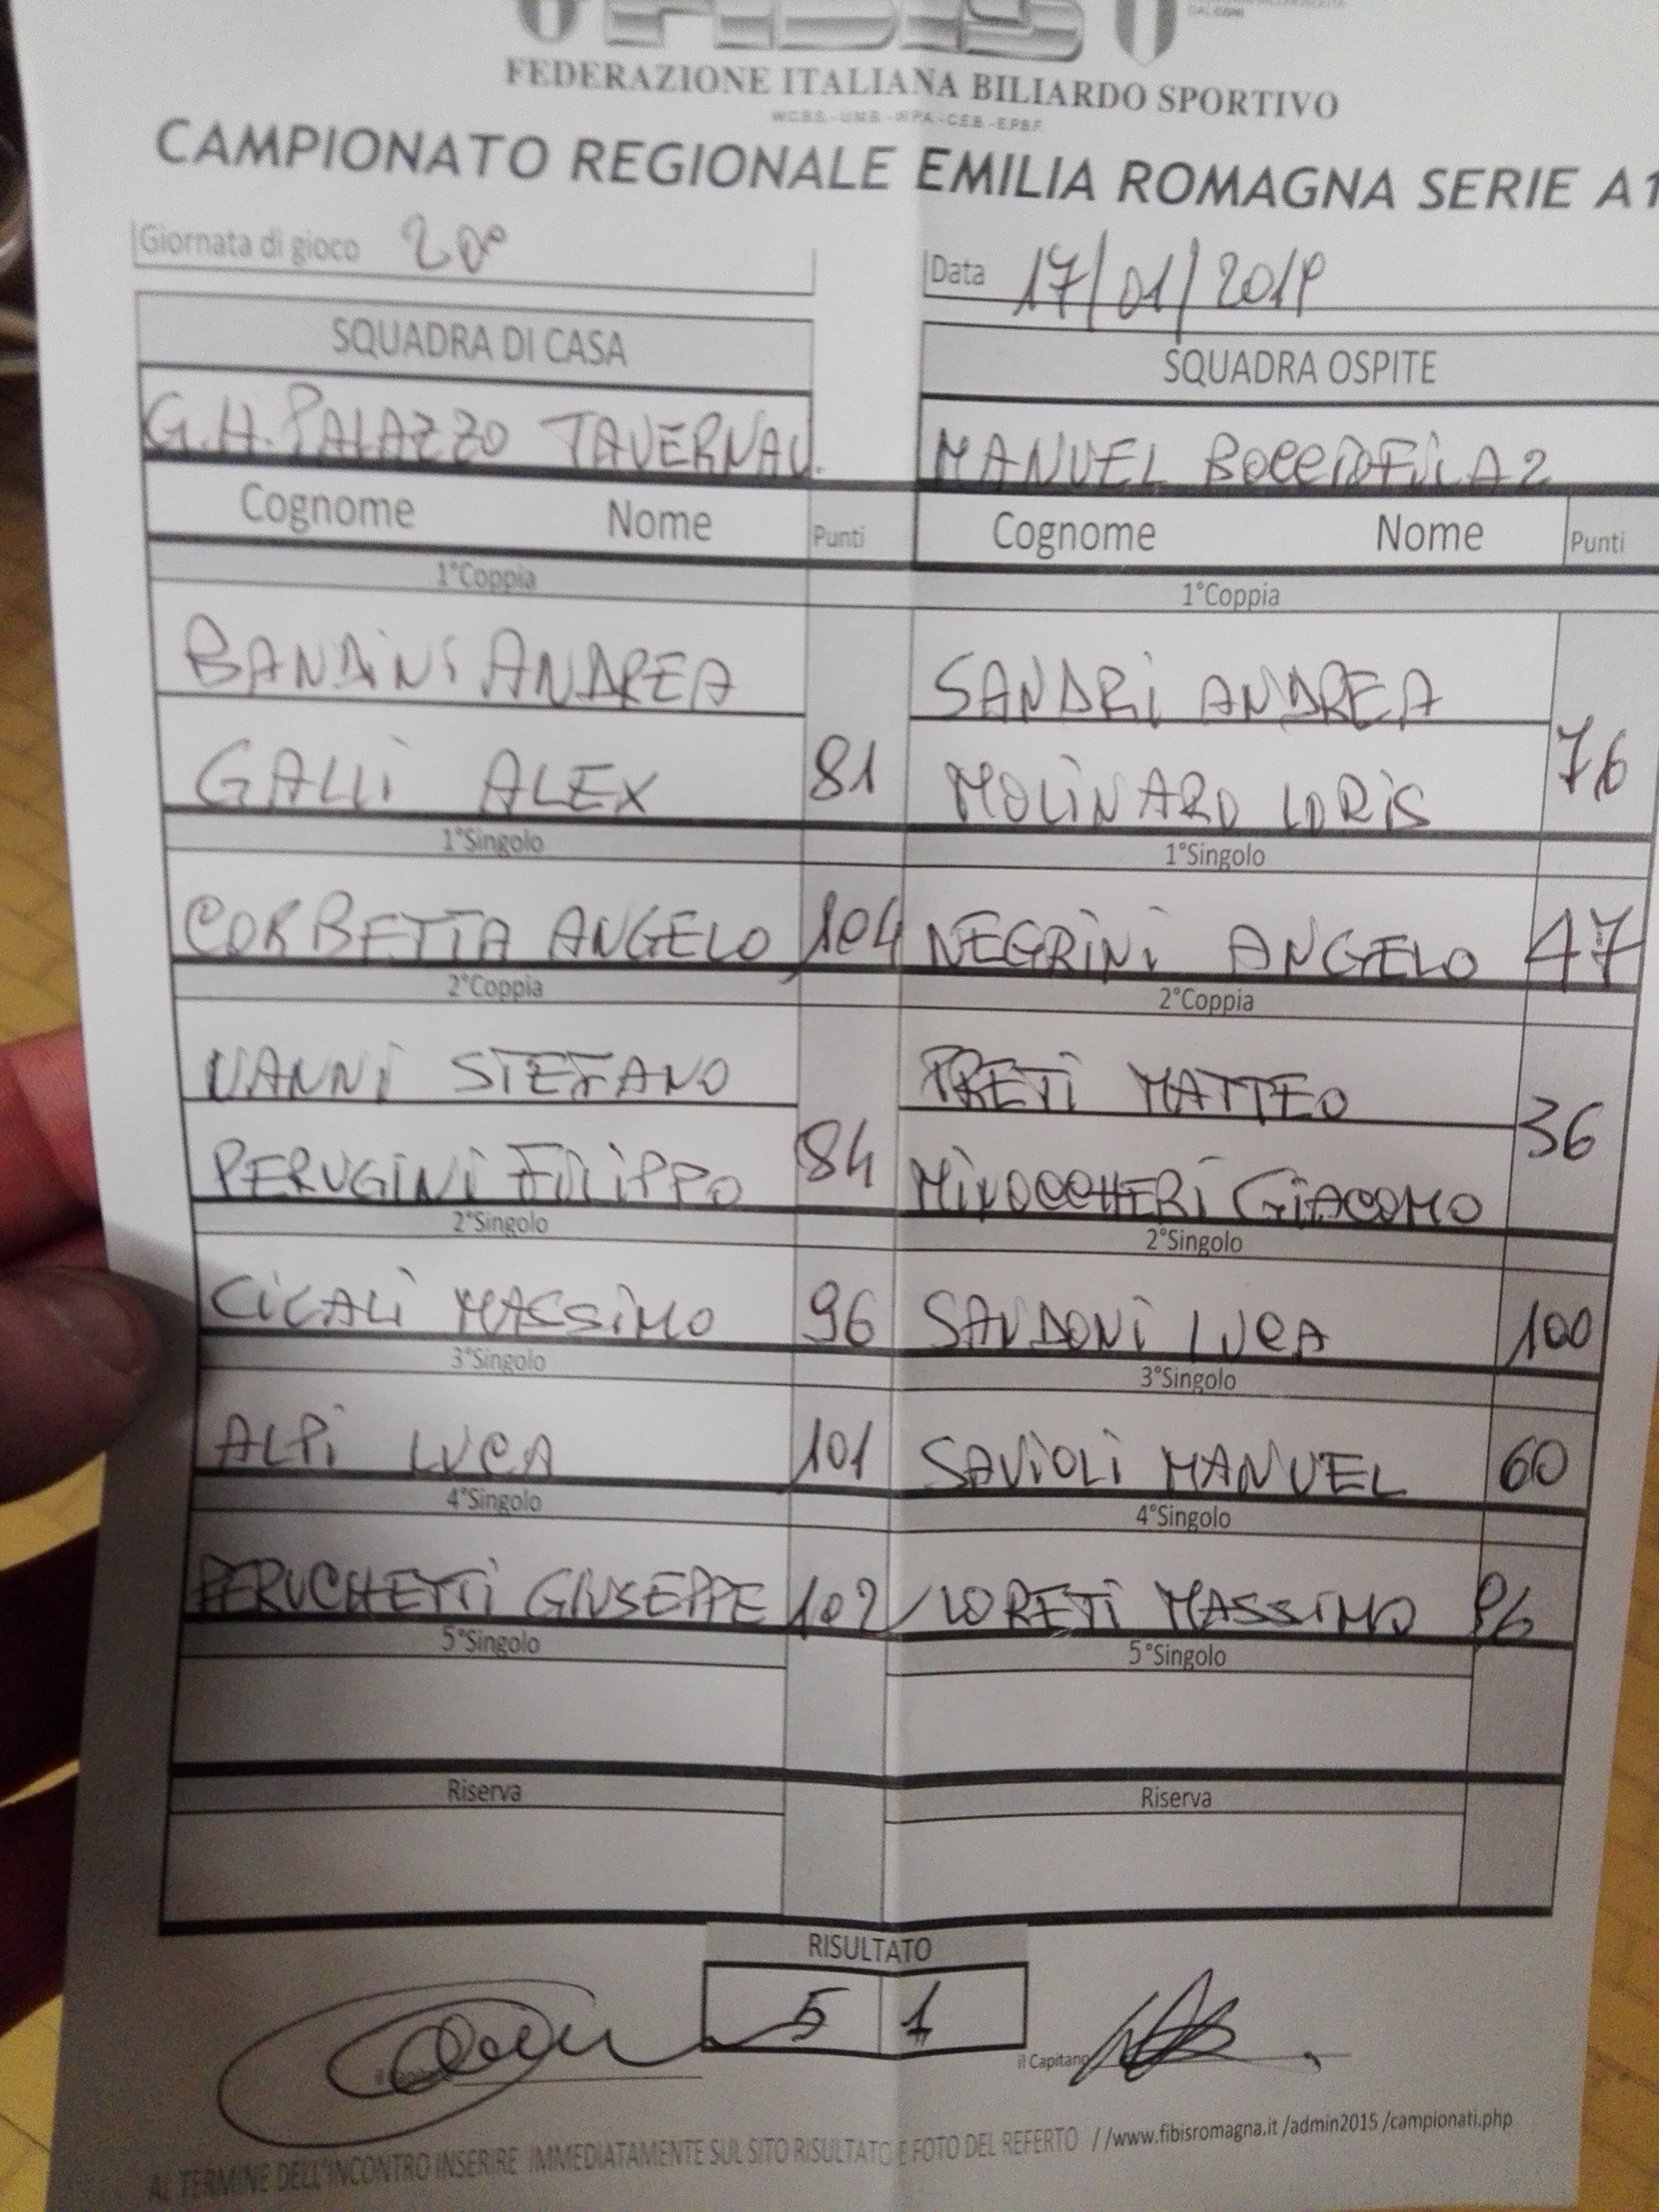 FEDERAZIONE ITALIANA BILIARDO SPORTIVO
W.C.B.S.-U.M.B.-W.P.A.-C.E.B.-E.P.B.F.
CAMPIONATO REGIONALE EMILIA ROMAGNA SERIE A1
Giornata di gioco 20° Data 17/01/2019
SQUADRA DI CASA SQUADRA OSPITE
G.H. PALAZZO TAVERNAU. MANUEL BOCCIOFILA 2
Cognome Nome Punti Cognome Nome Punti
1°Coppia 1°Coppia
BANDINI ANDREA SANDRI ANDREA
GALLI ALEX 81 MOLINARO LORIS 76
1°Singolo 1°Singolo
CORBETTA ANGELO 104 NEGRINI ANGELO 47
2°Coppia 2°Coppia
VANNI STEFANO PRETI MATTEO
PERUGINI FILIPPO 84 MINOCCHERI GIACOMO 36
2°Singolo 2°Singolo
CICALI MASSIMO 96 SANDONI LUCA 100
3°Singolo 3°Singolo
ALPI LUCA 101 SAVIOLI MANUEL 60
4°Singolo 4°Singolo
PERUCHETTI GIUSEPPE 102 LORETI MASSIMO 96
5°Singolo 5°Singolo
Riserva Riserva
RISULTATO
5 1
il Capitano
AL TERMINE DELL'INCONTRO INSERIRE IMMEDIATAMENTE SUL SITO RISULTATO E FOTO DEL REFERTO //www.fibisromagna.it /admin2015 /campionati.php